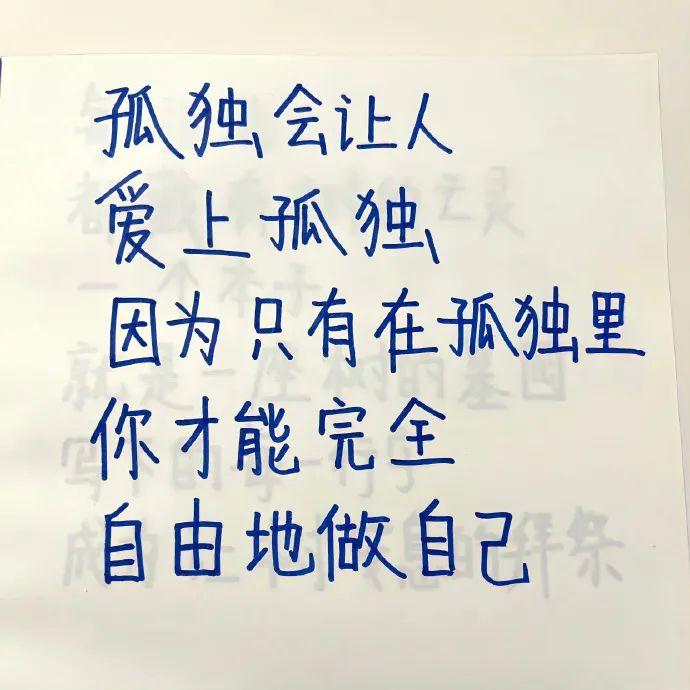 孤独会让人
爱上孤独
因为只有在孤独里
你才能完全
自由地做自己